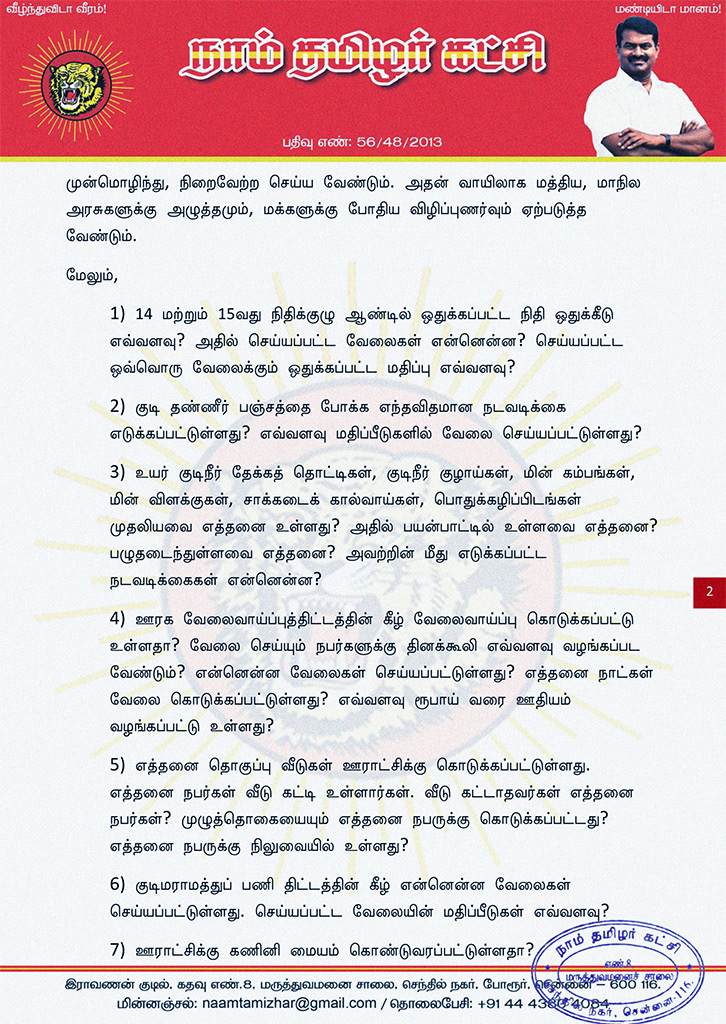 வீழ்ந்துவிடா வீரம்!
மண்டியிடா மானம்!
நாம் தமிழர் கட்சி
பதிவு எண்: 56/48/2013
முன்மொழிந்து, நிறைவேற்ற செய்ய வேண்டும். அதன் வாயிலாக மத்திய, மாநில
அரசுகளுக்கு அழுத்தமும், மக்களுக்கு போதிய விழிப்புணர்வும் ஏற்படுத்த
வேண்டும்.
மேலும்,
1) 14 மற்றும் 15வது நிதிக்குழு ஆண்டில் ஒதுக்கப்பட்ட நிதி ஒதுக்கீடு
எவ்வளவு? அதில் செய்யப்பட்ட வேலைகள் என்னென்ன? செய்யப்பட்ட
ஒவ்வொரு வேலைக்கும் ஒதுக்கப்பட்ட மதிப்பு எவ்வளவு?
2) குடி தண்ணீர் பஞ்சத்தை போக்க எந்தவிதமான நடவடிக்கை
எடுக்கப்பட்டுள்ளது? எவ்வளவு மதிப்பீடுகளில் வேலை செய்யப்பட்டுள்ளது?
3) உயர் குடிநீர் தேக்கத் தொட்டிகள், குடிநீர் குழாய்கள், மின் கம்பங்கள்,
மின் விளக்குகள், சாக்கடைக் கால்வாய்கள், பொதுக்கழிப்பிடங்கள்
முதலியவை எத்தனை உள்ளது? அதில் பயன்பாட்டில் உள்ளவை எத்தனை?
பழுதடைந்துள்ளவை எத்தனை? அவற்றின் மீது எடுக்கப்பட்ட
நடவடிக்கைகள் என்னென்ன?
2
4) ஊரக வேலைவாய்ப்புத்திட்டத்தின் கீழ் வேலைவாய்ப்பு கொடுக்கப்பட்டு
உள்ளதா? வேலை செய்யும் நபர்களுக்கு தினக்கூலி எவ்வளவு வழங்கப்பட
வேண்டும்? என்னென்ன வேலைகள் செய்யப்பட்டுள்ளது? எத்தனை நாட்கள்
வேலை கொடுக்கப்பட்டுள்ளது? எவ்வளவு ரூபாய் வரை ஊதியம்
வழங்கப்பட்டு உள்ளது?
5) எத்தனை தொகுப்பு வீடுகள் ஊராட்சிக்கு கொடுக்கப்பட்டுள்ளது.
எத்தனை நபர்கள் வீடு கட்டி உள்ளார்கள். வீடு கட்டாதவர்கள் எத்தனை
நபர்கள்? முழுத்தொகையையும் எத்தனை நபருக்கு கொடுக்கப்பட்டது?
எத்தனை நபருக்கு நிலுவையில் உள்ளது?
6) குடிமராமத்துப் பணி திட்டத்தின் கீழ் என்னென்ன வேலைகள்
செய்யப்பட்டுள்ளது. செய்யப்பட்ட வேலையின் மதிப்பீடுகள் எவ்வளவு?
7) ஊராட்சிக்கு கணினி மையம் கொண்டுவரப்பட்டுள்ளதா?
நாம் தமிழர் கட்சி
எண்.8
மருத்துவமனைச் சாலை
செந்தில் நகர், சென்னை-116.
இராவணன் குடில், கதவு எண்.8, மருத்துவமனை சாலை, செந்தில் நகர், போரூர், சென்னை – 600 116.
மின்னஞ்சல்: naamtamizhar@gmail.com / தொலைபேசி: +91 44 4380 4084